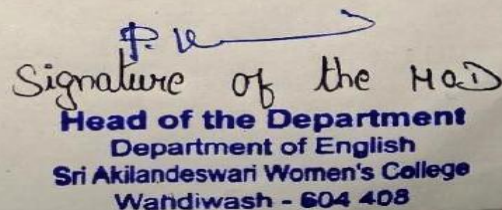 Signature of the HOD
Head of the Department
Department of English
Sri Akilandeswari Women's College
Wandiwash - 604 408